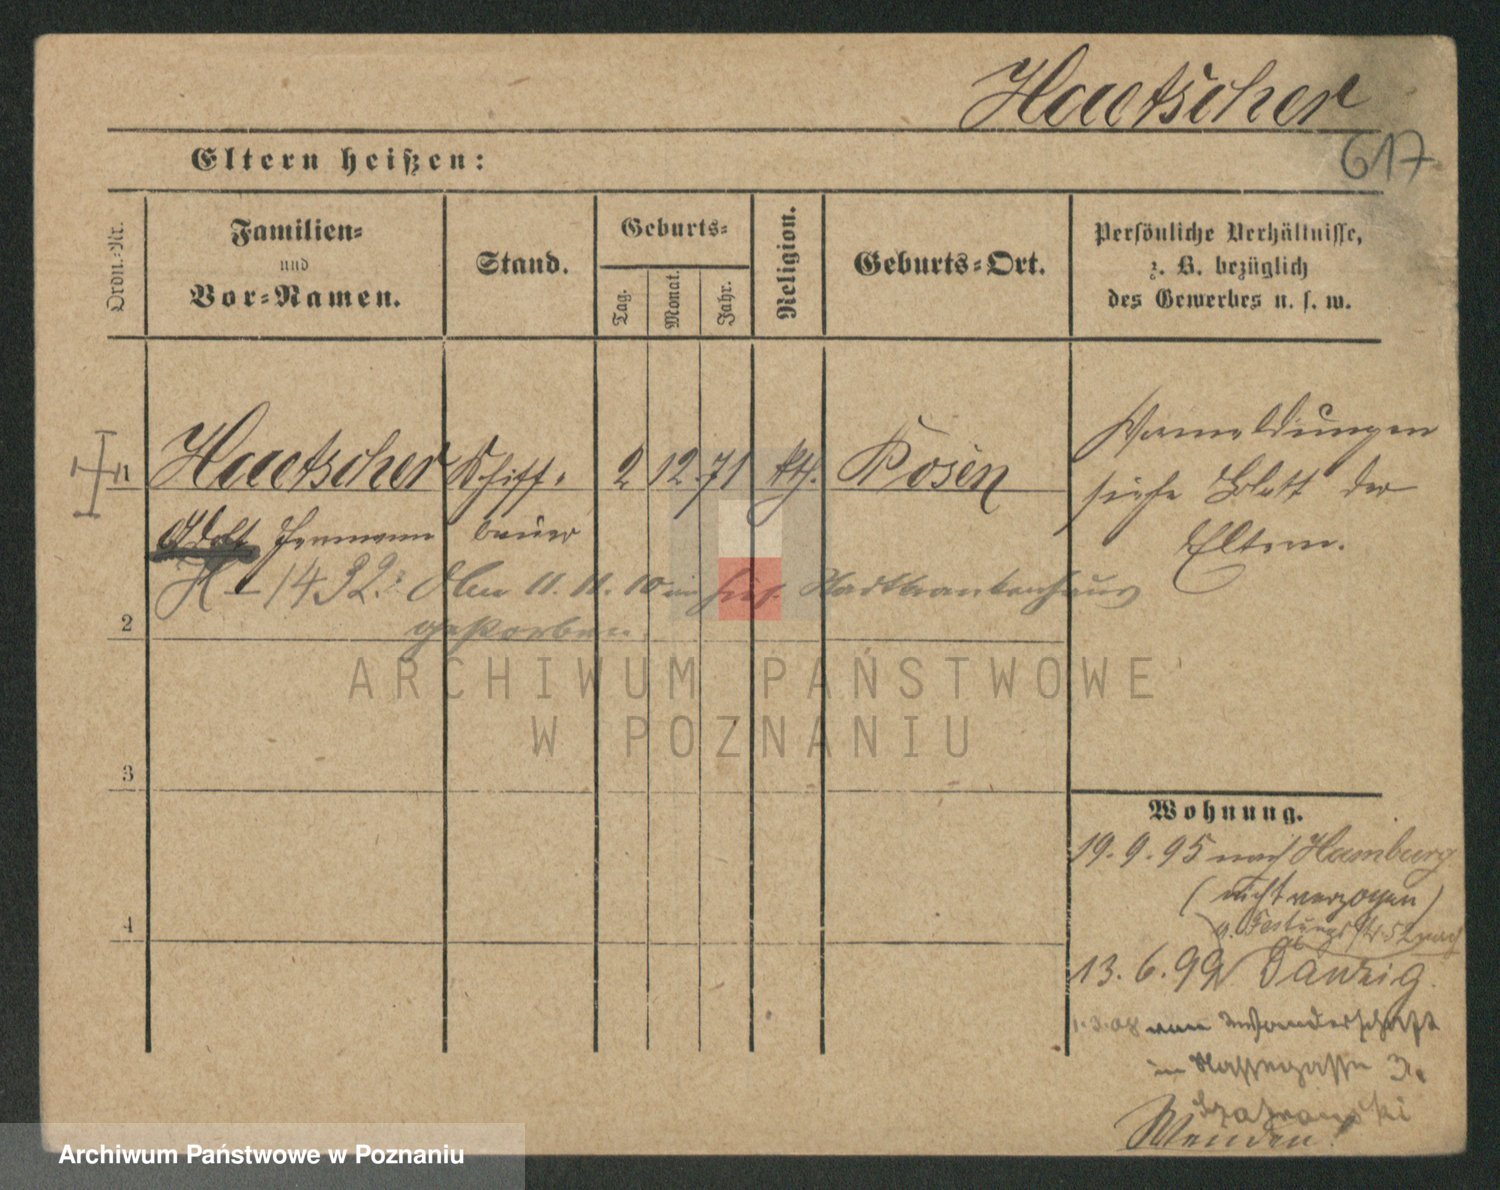 Haetscher
617
Eltern heißen:
Ordn.-Nr.
Familien-
und
Vor-Namen.
Stand.
Geburts-
Tag.
Monat.
Jahr.
Religion.
Geburts-Ort.
Persönliche Verhältnisse,
z. B. bezüglich
des Gewerbes u. s. w.
1 Haetscher Schiff- 2 12. 71 kth. Posen
Adolf Hermann bauer
H - 1432. 11. 11. 10 im Stadtkrankenhaus
gestorben.
Anmeldungen
siehe Blatt der
Eltern.
2
3
4
Wohnung.
19. 9. 95 nach Hamburg
(nicht verzogen)
13. 6. 99 Danzig.
1. 3. 08 von Wanderschaft
in 3.
Wenden!
ARCHIWUM PAŃSTWOWE
W POZNANIU
Archiwum Państwowe w Poznaniu